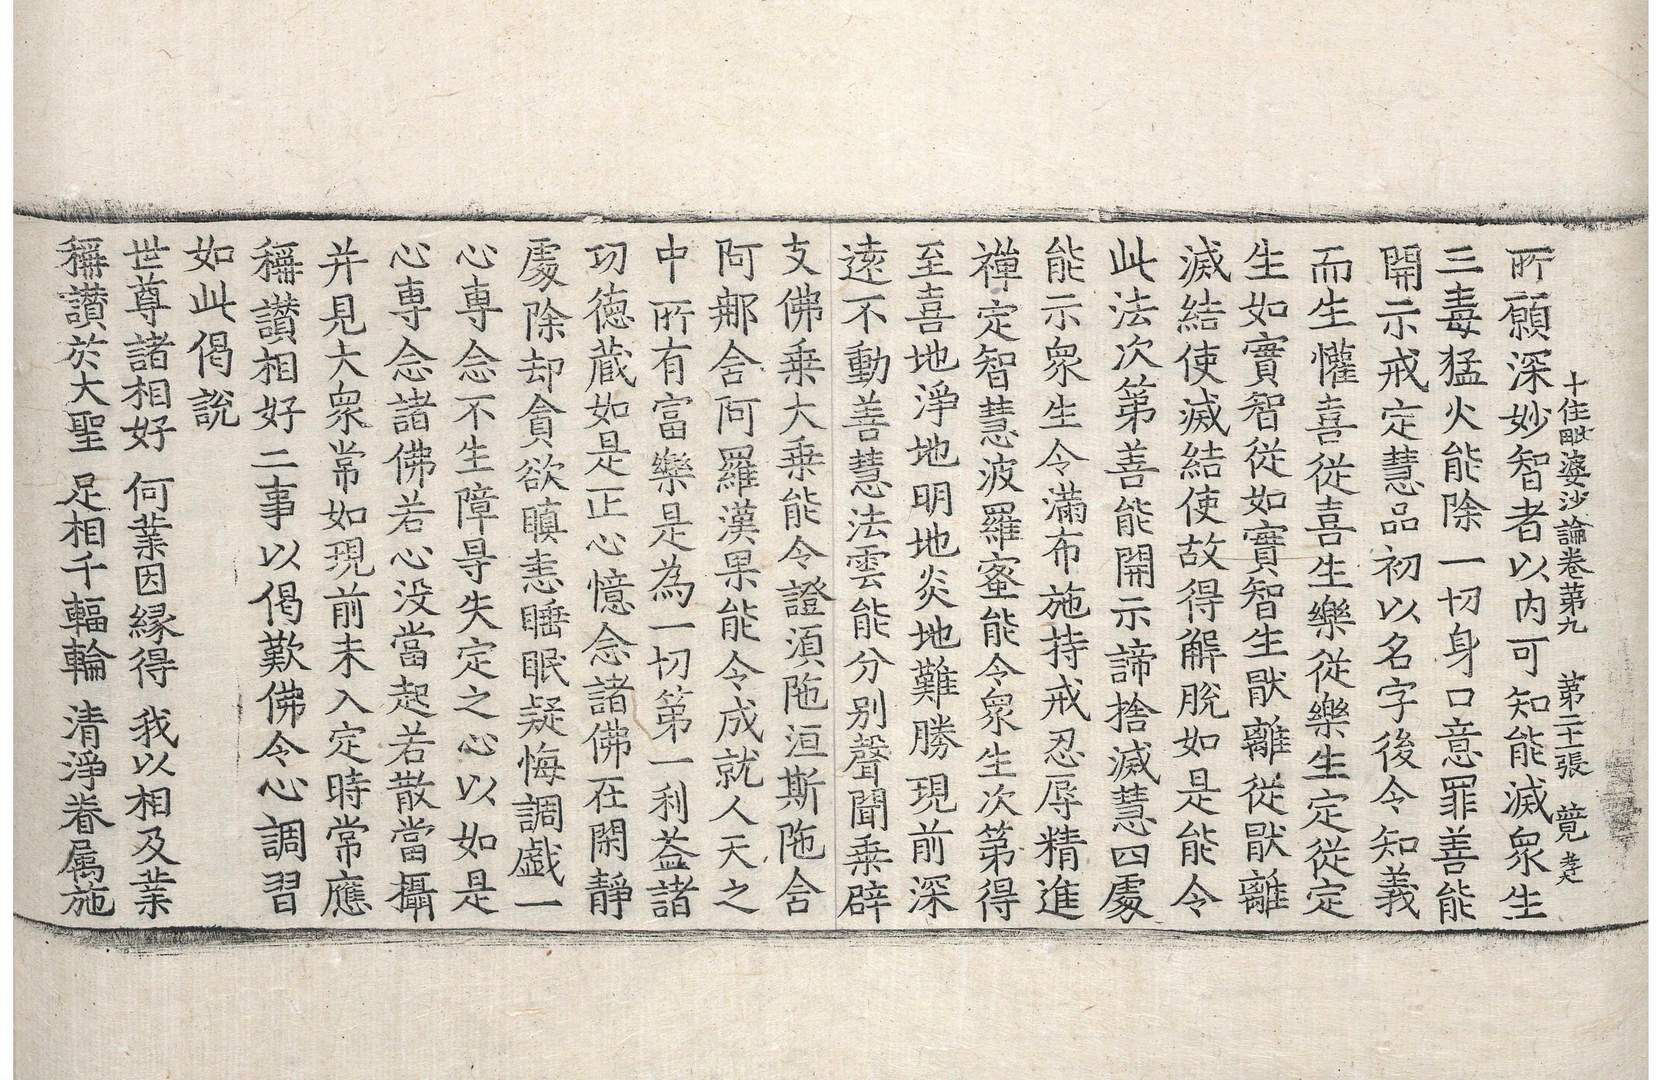 十住毗婆沙論卷苐九 苐二十張 竟
所願深妙智者以內可知能滅衆生
三毒猛火能除一切身口意罪善能
開示戒定慧品初以名字後令知義
而生懽喜從喜生樂從樂生定從定
生如實智從如實智生猒離從猒離
滅結使滅結使故得解脫如是能令
此法次第善能開示諦捨滅慧四處
能示衆生令滿布施持戒忍辱精進
禪定智慧波羅蜜能令衆生次第得
至喜地淨地明地炎地難勝現前深
遠不動善慧法雲能分別聲聞乗辟
支佛乗大乗能令證湏陁洹斯陁含
阿那含阿羅漢果能令成就人天之
中所有富樂是為一切第一利益諸
功德藏如是正心憶念諸佛在閑靜
處除却貪欲瞋恚睡眠疑悔調戲一
心専念不生障㝵失定之心以如是
心専念諸佛若心没當起若散當攝
并見大衆常如現前未入定時常應
稱讃相好二事以偈歎佛令心調習
如此偈說
世尊諸相好 何業因緣得 我以相及業
稱讃於大聖 足相千輻輪 清淨眷属施